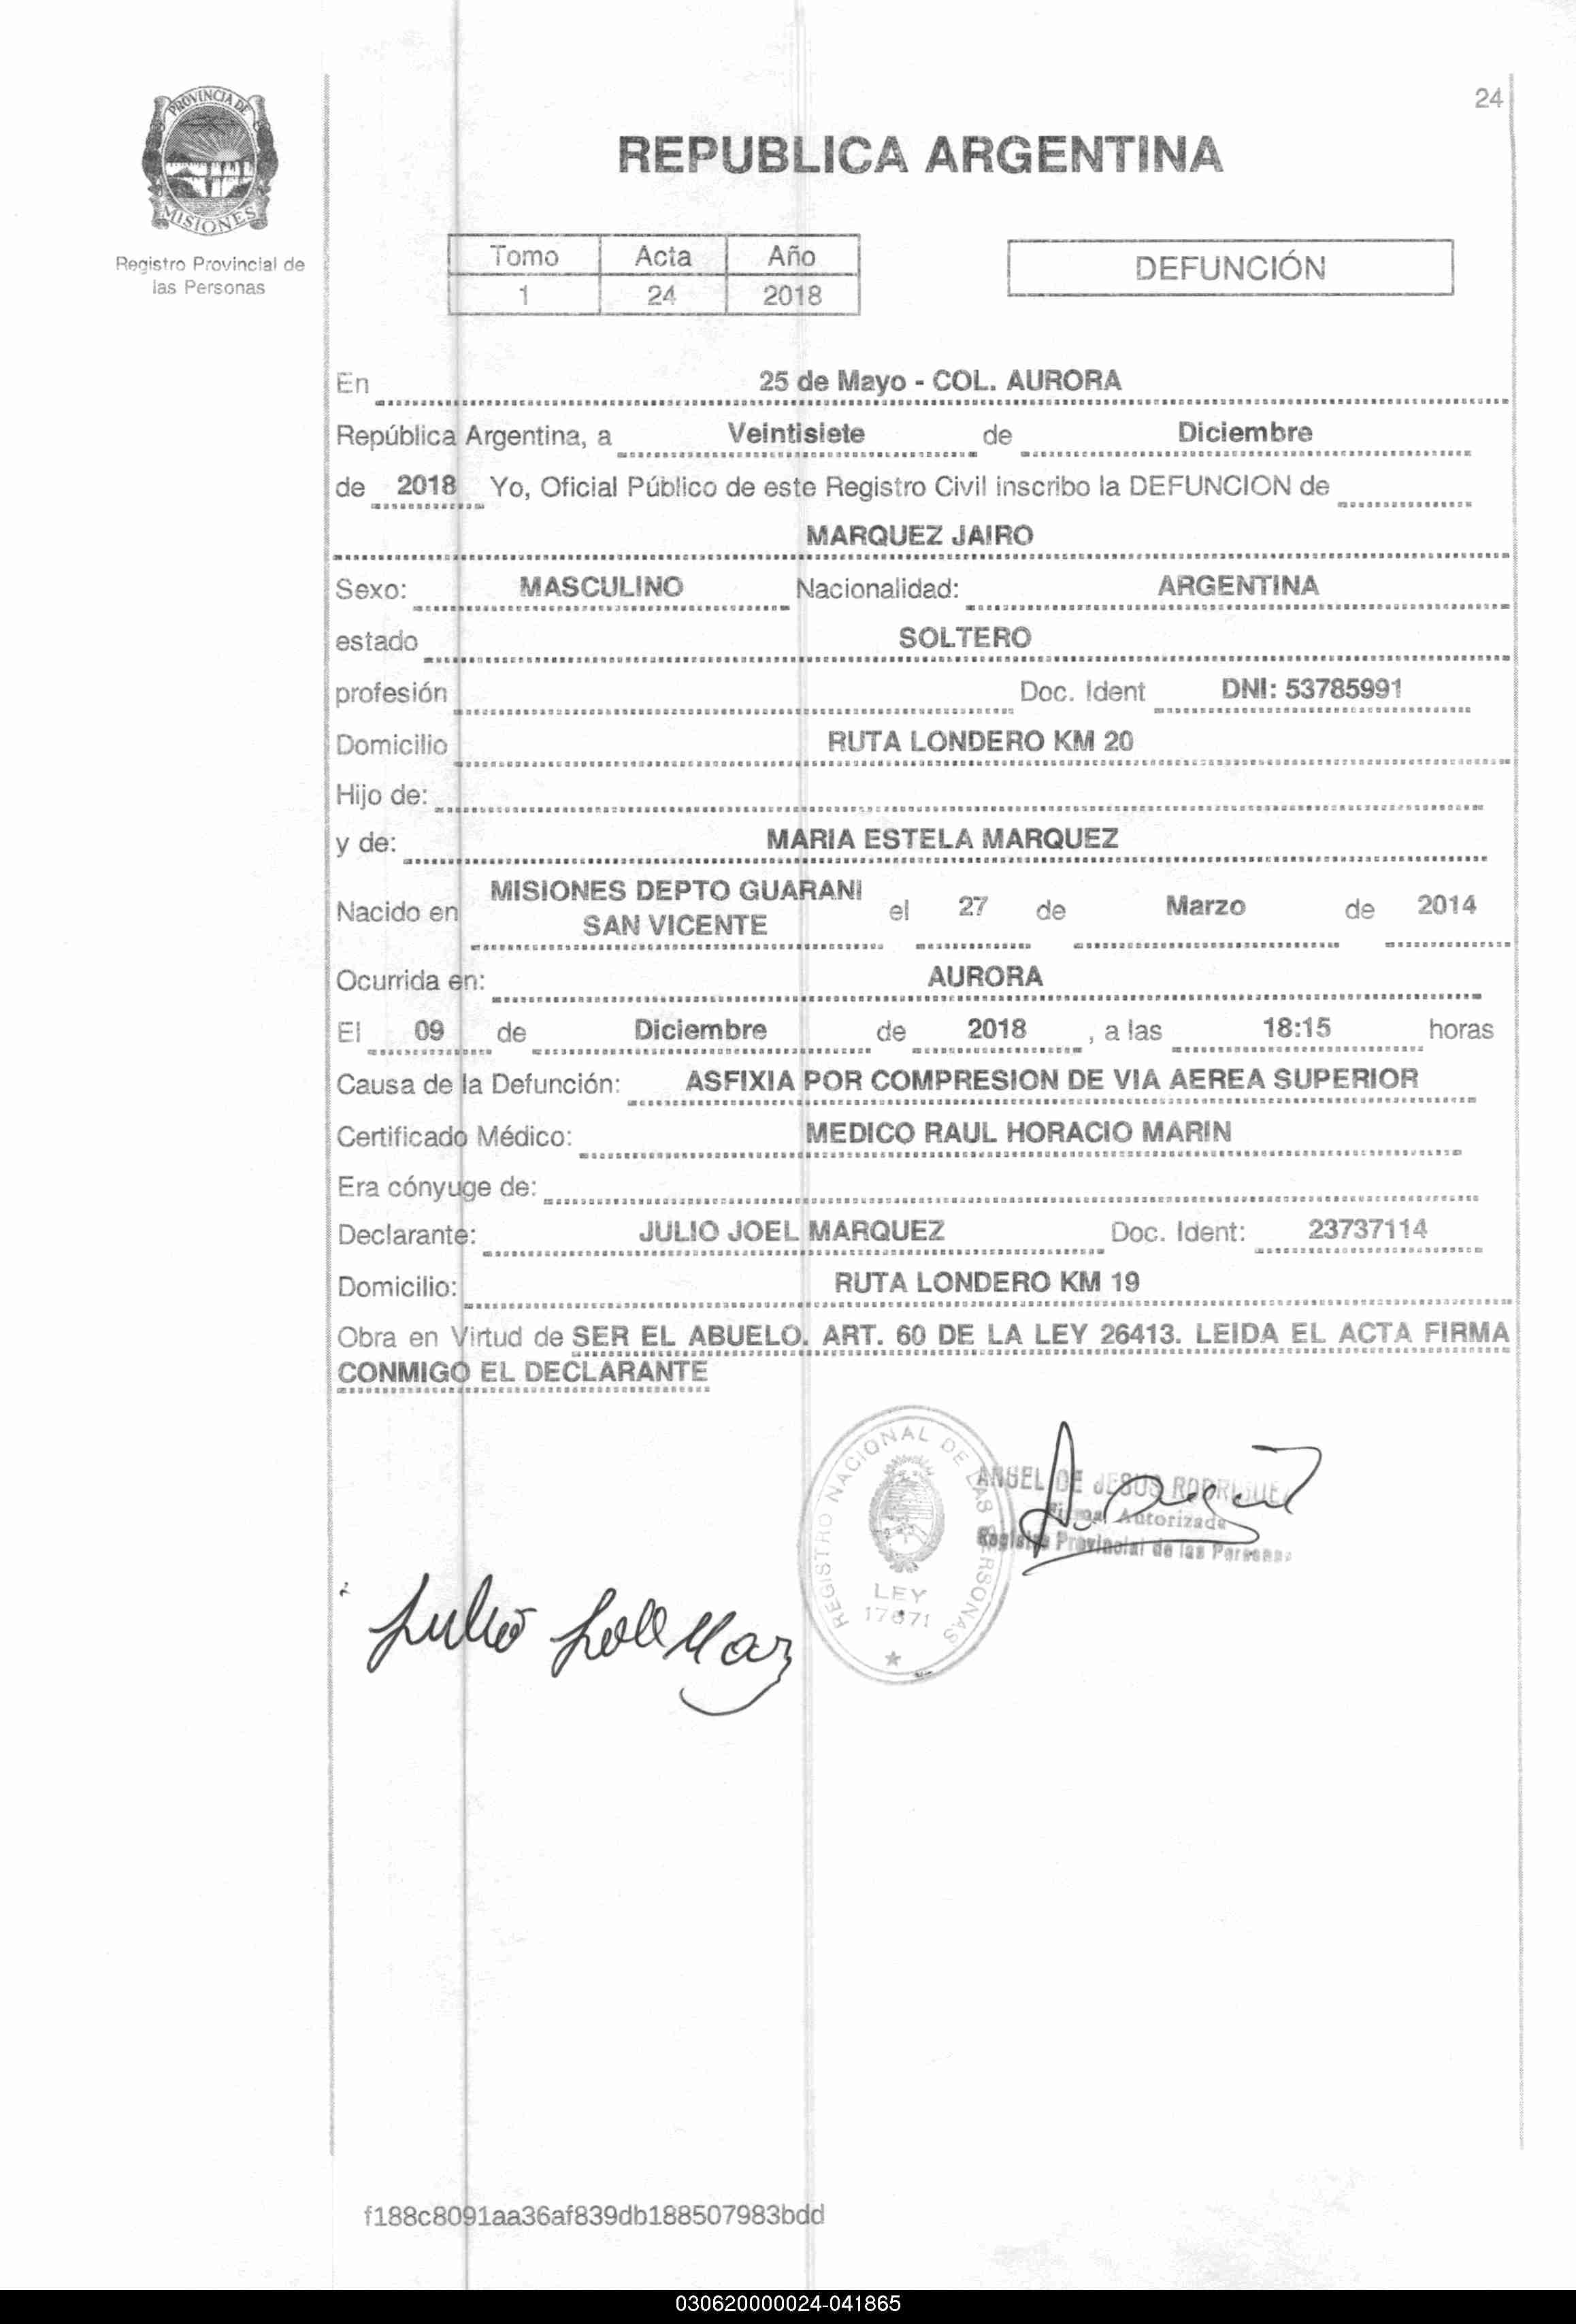 24
PROVINCIA DE
MISIONES
Registro Provincial de
las Personas
REPUBLICA ARGENTINA
Tomo Acta Año
1 24 2018
DEFUNCIÓN
En 25 de Mayo - COL. AURORA
República Argentina, a Veintisiete de Diciembre
de 2018 Yo, Oficial Público de este Registro Civil inscribo la DEFUNCION de
MARQUEZ JAIRO
Sexo: MASCULINO Nacionalidad: ARGENTINA
estado SOLTERO
profesión Doc. Ident DNI: 53785991
Domicilio RUTA LONDERO KM 20
Hijo de:
y de: MARIA ESTELA MARQUEZ
Nacido en MISIONES DEPTO GUARANI
SAN VICENTE el 27 de Marzo de 2014
Ocurrida en: AURORA
El 09 de Diciembre de 2018 , a las 18:15 horas
Causa de la Defunción: ASFIXIA POR COMPRESION DE VIA AEREA SUPERIOR
Certificado Médico: MEDICO RAUL HORACIO MARIN
Era cónyuge de:
Declarante: JULIO JOEL MARQUEZ Doc. Ident: 23737114
Domicilio: RUTA LONDERO KM 19
Obra en Virtud de SER EL ABUELO. ART. 60 DE LA LEY 26413. LEIDA EL ACTA FIRMA
CONMIGO EL DECLARANTE
REGISTRO NACIONAL DE LAS PERSONAS
LEY
17671
ANGEL DE JESUS
Firma Autorizada
Registro Provincial de las Personas
Julio
f188c8091aa36af839db188507983bdd
030620000024-041865